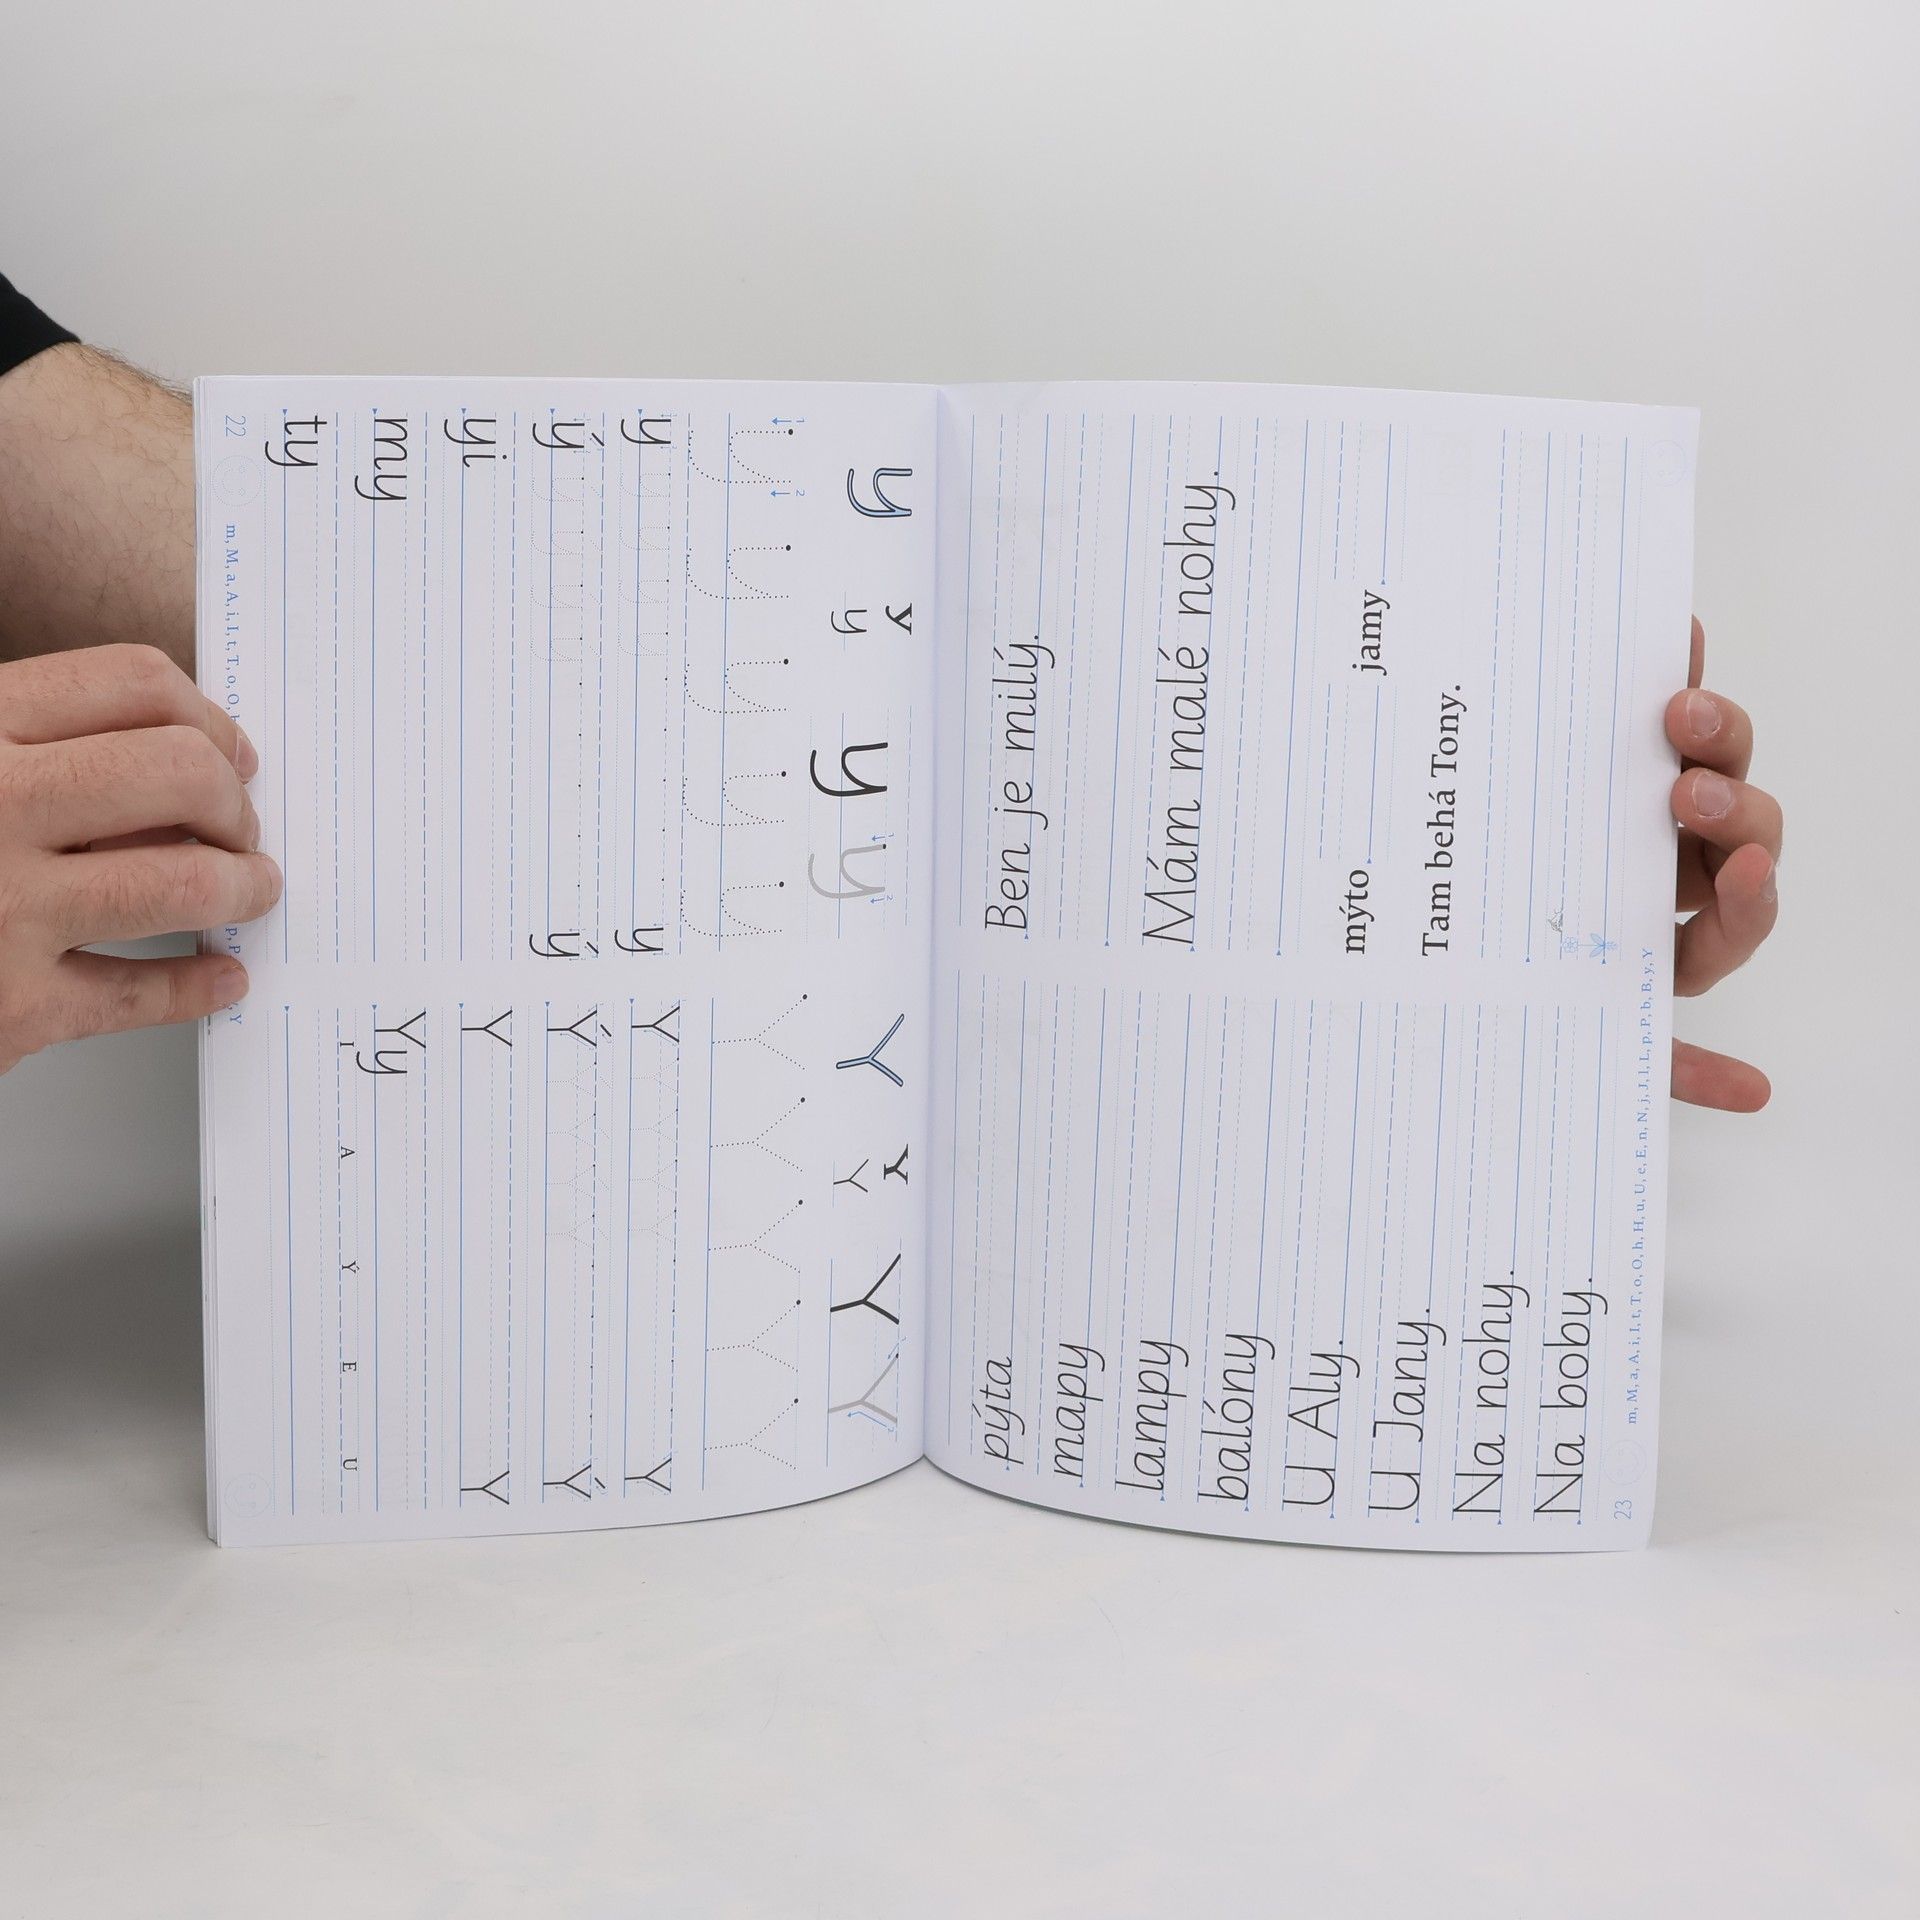 y y y y Y Y Y Y
y Y
1 2
y y y y y Y Y Y Y Y
y y y y y Y Y Y Y Y
ý ý ý ý ý Ý Ý Ý Ý Ý
yi Y Y
my Yy
I A Ý E U
ty
22 m, M, a, A, i, I, t, T, o, O, p, P, Y
pýta
mapy
lampy
balóny
U Aly.
U Jany.
Na nohy.
Na boby.
Ben je milý.
Mám malé nohy.
mýto jamy
Tam behá Tony.
23 m, M, a, A, i, I, t, T, o, O, h, H, u, U, e, E, n, N, j, J, l, L, p, P, b, B, y, Y